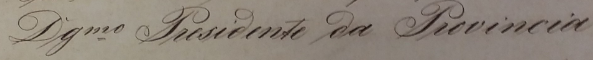 Dgmo Presidente da Provincia